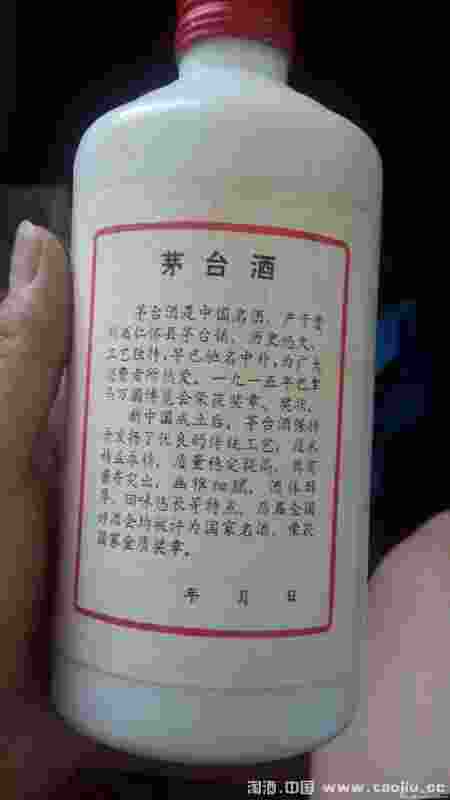 茅台酒
茅台酒是中国名酒，产于贵
州省仁怀县茅台镇，历史悠久，
工艺独特，早已驰名中外，为广大
消费者所热爱。一九一五年巴拿
马万国博览会荣获奖章、奖状。
新中国成立后，茅台酒保持
并发扬了优良的传统工艺，技术
精益求精，质量稳定提高，具有
酱香突出，幽雅细腻，酒体醇
厚，回味悠长等特点，历届全国
评酒会均被评为国家名酒，荣获
国家金质奖章。
年 月 日
淘酒.中国 www.caojiu.cc